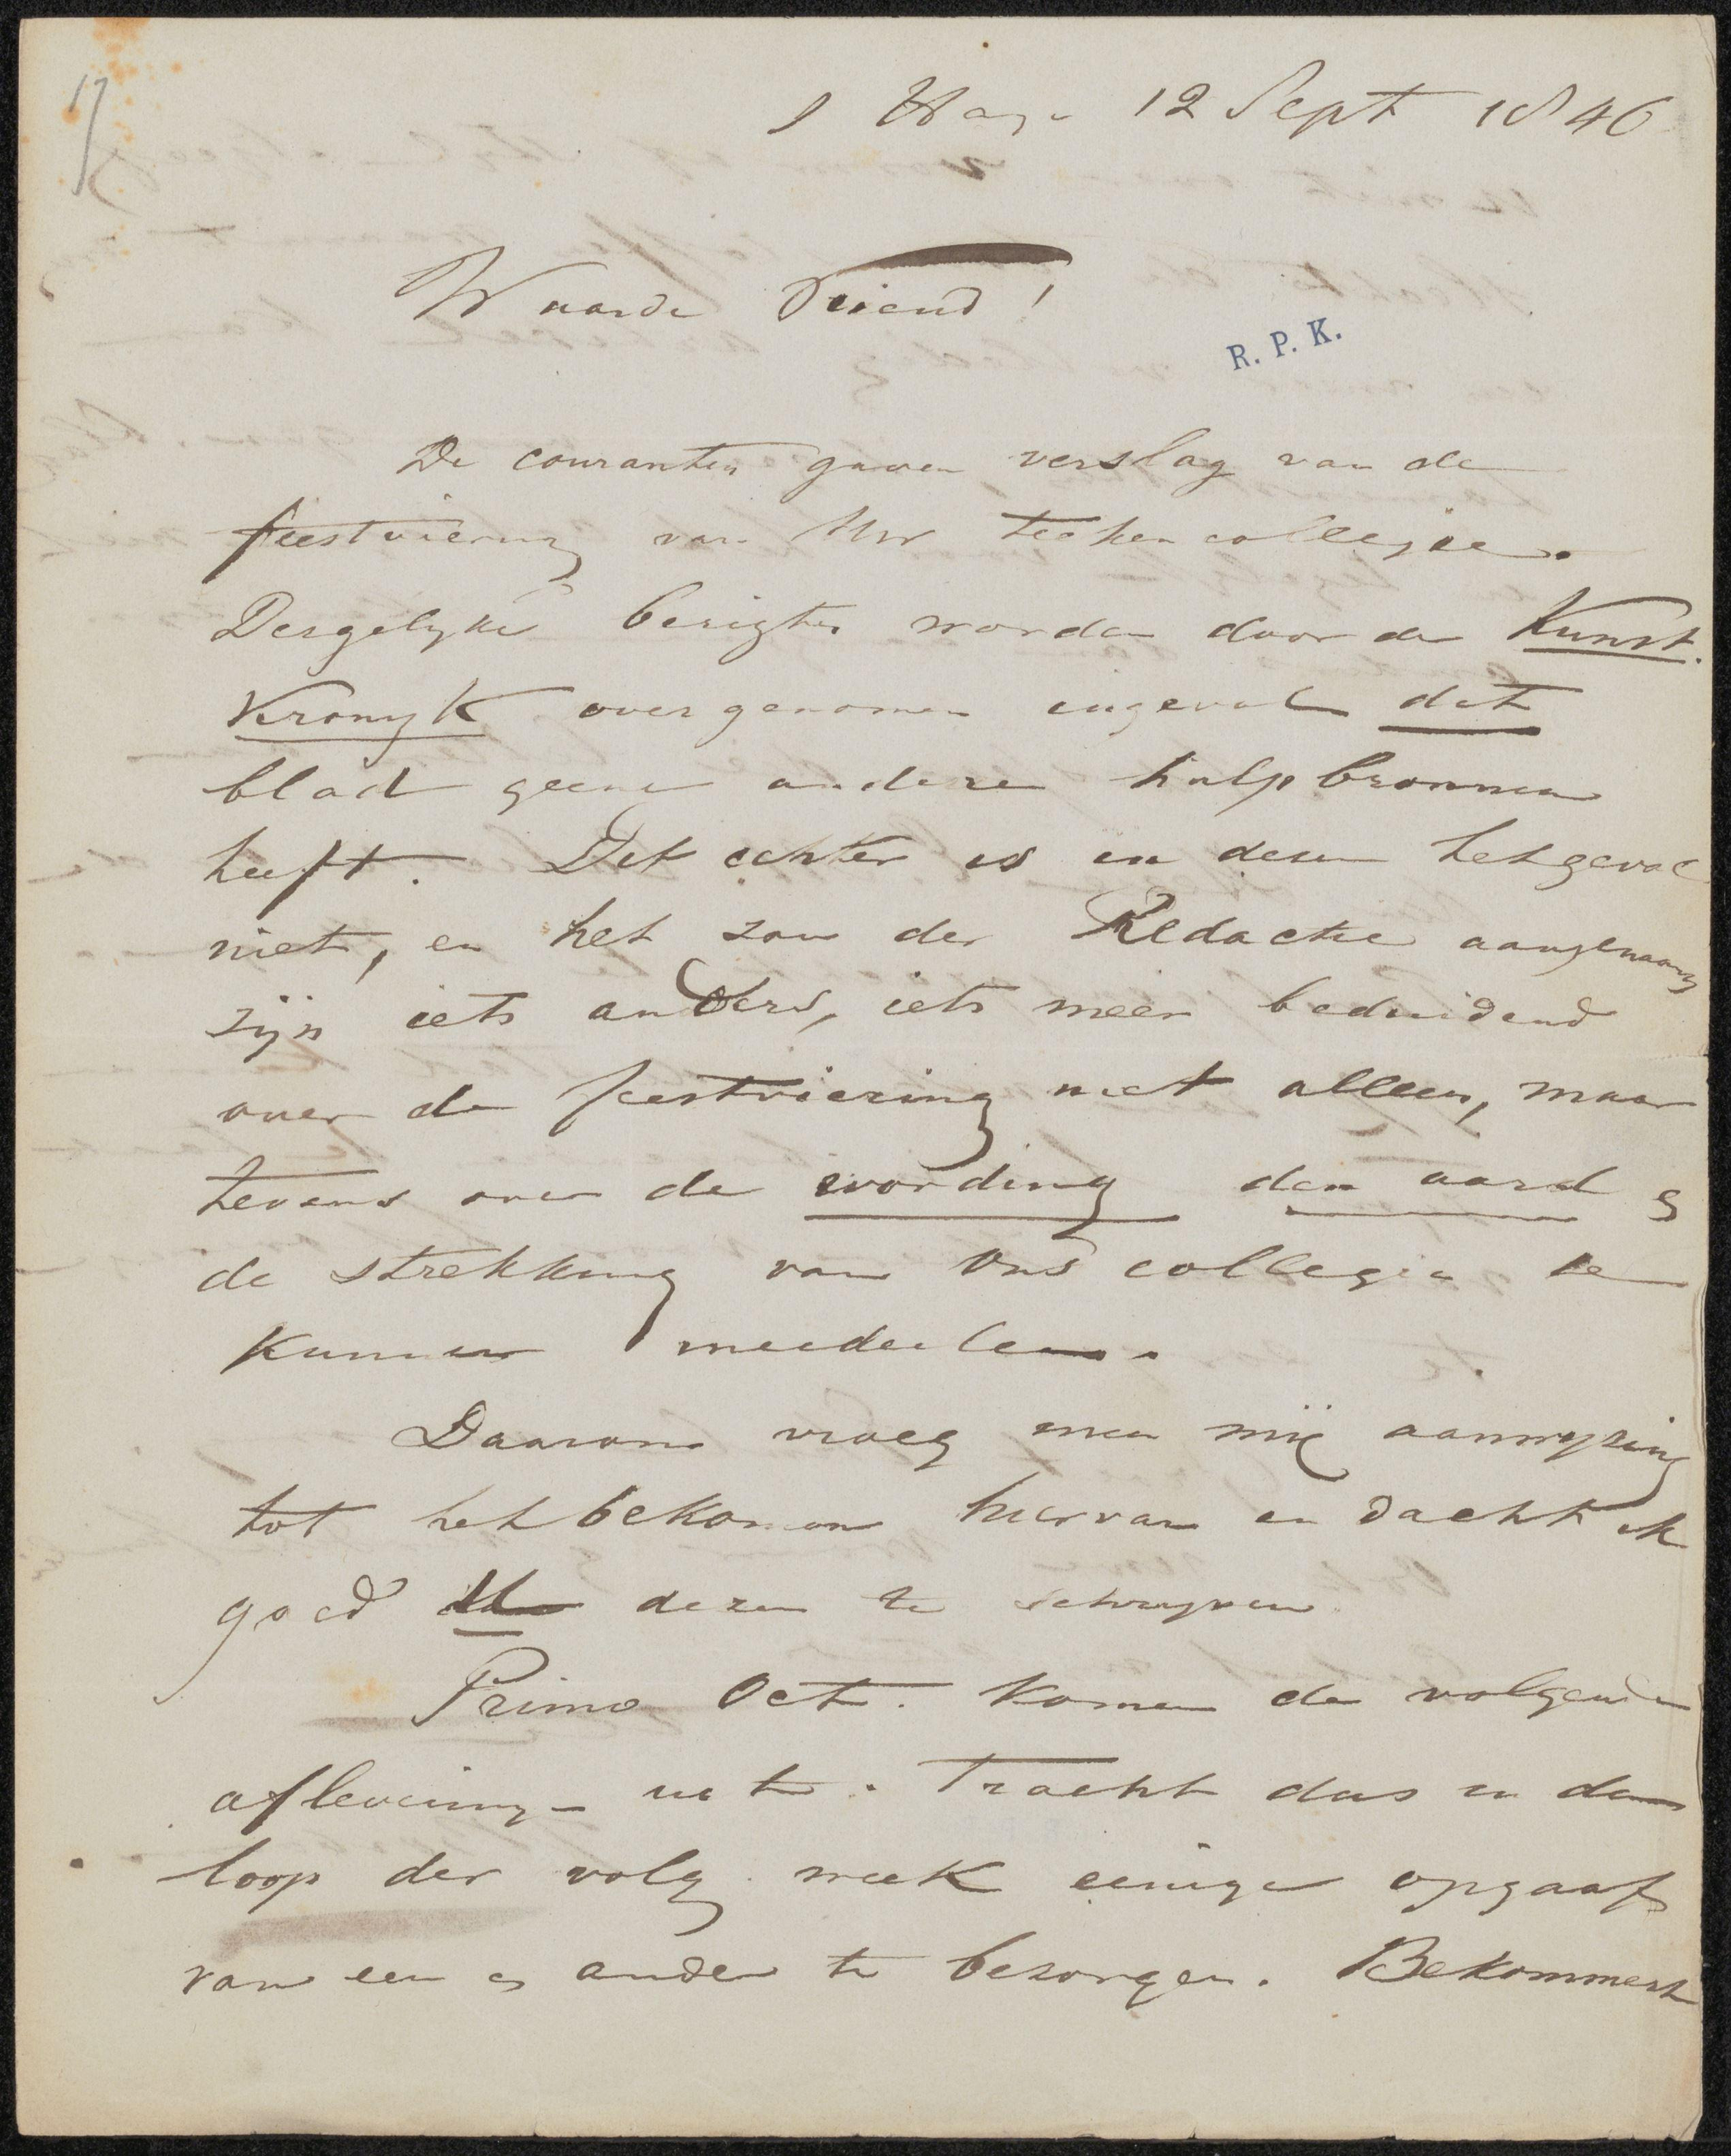 17
s Hage 12 Sept 1846
Waarde Vriend!
R. P. K.
De couranten gaven verslag van de
feestviering van Uw teekencollegie.
Dergelyke berigten worden door de Kunst.
Kronyk overgenomen ingeval dat
blad geene andere hulpbronnen
heeft. Dit echter is in dezen het geval
niet, en het zou der Redactie aangenaam
zijn iets anders, iets meer beduidend
over de feestviering niet alleen, maar
tevens over de wording den aard &
de strekking van ons collegie te
kunnen meedeelen.
Daarom vroeg men mij aanwyzing
tot het bekomen hiervan en dacht ik
goed U dezen te schryven
Primo Oct. komen de volgende
aflevering uit. Tracht dus in den
loop der volg. week eenige opgaaf
van een & ander te bezorgen. Bekommert